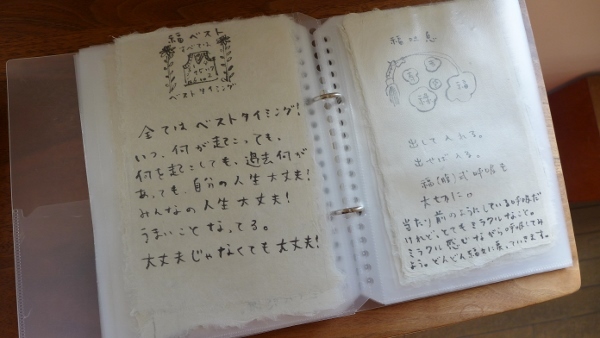 福ベスト
全ては
ベストタイミング
全ては ベストタイミング!
いつ、何が起こっても。
何を起こしても、過去何が
あっても、自分の人生大丈夫!
みんなの人生大丈夫!
うまいことなってる。
大丈夫じゃなくても大丈夫!
福
出して入れる。
出せば入る。
福(腹)式呼吸も
大切に。
当たり前のようにしている呼吸だ
けれど、とてもミラクルなこと。
ミラクル感じながら呼吸してみ
よう。どんどん福を上乗っていきます。